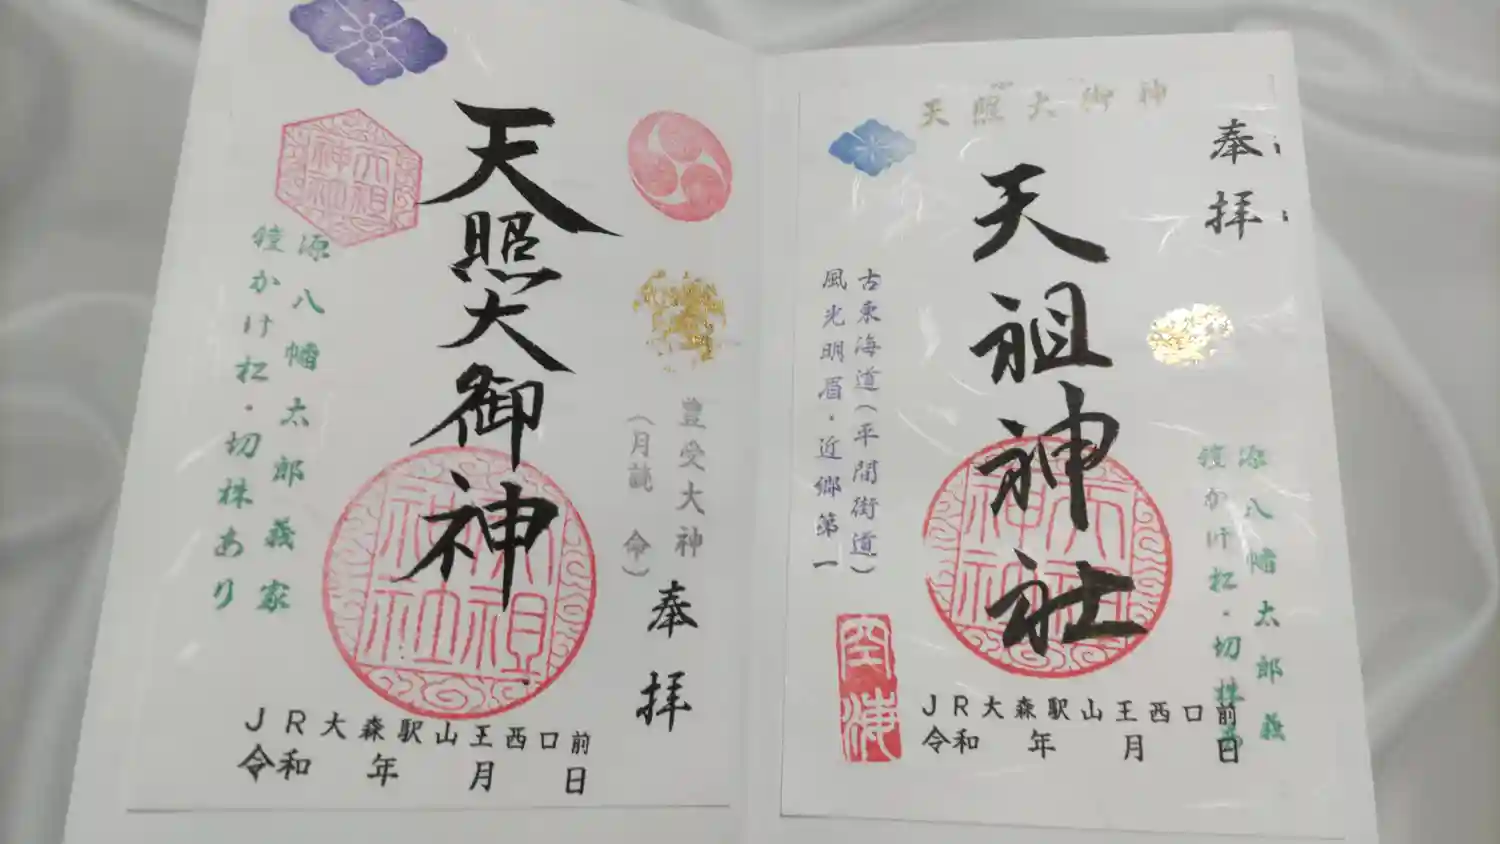 奉拝
天照大御神
天祖神社
古東海道(平間街道)
風光明眉・近郷第一
源八幡太郎義
鎧かけ松・切株
空海
JR大森駅山王西口前
令和 年 月 日
天照大御神
豊受大神
(月読 命)
奉拝
天祖神社
源八幡太郎義家
鎧かけ松・切株あり
JR大森駅山王西口前
令和 年 月 日